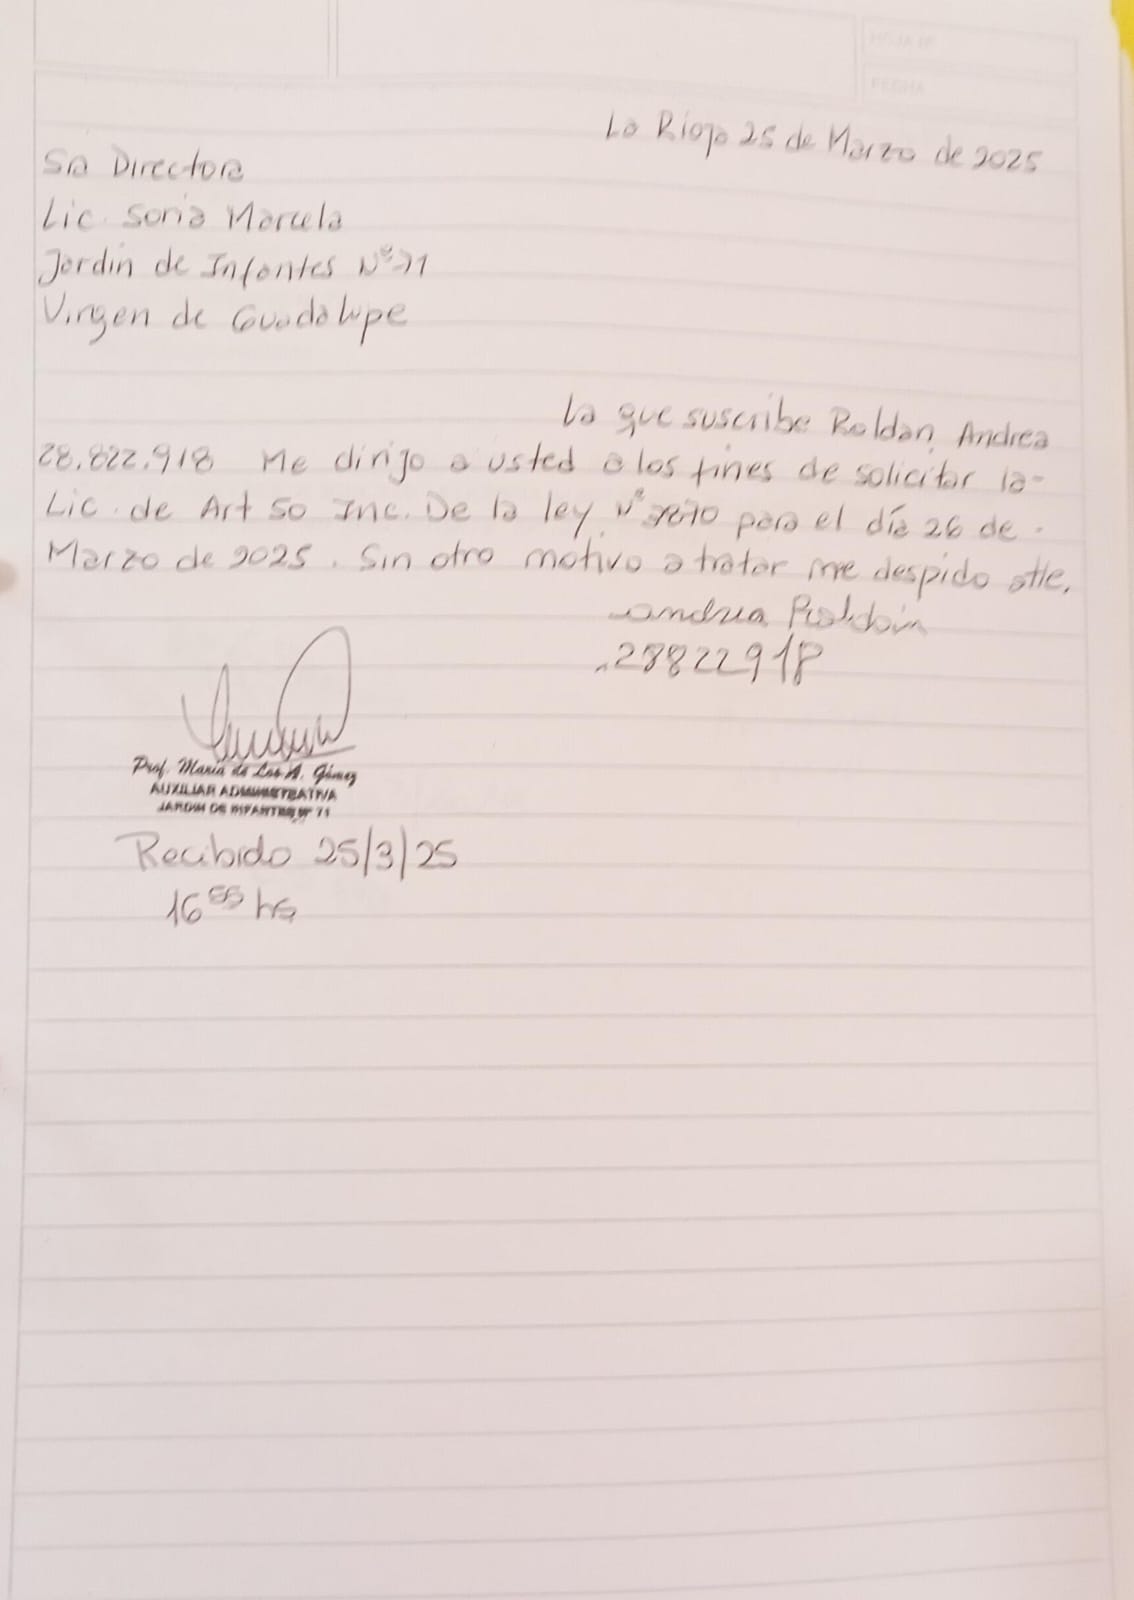 HOJA Nº
FECHA
La Rioja 25 de Marzo de 2025
Sra Directora
Lic. Soria Marcela
Jardin de Infantes Nº 71
Virgen de Guadalupe
La que suscribe Roldan, Andrea
28.822.918 Me dirijo a usted a los fines de solicitar la-
Lic. de Art 50 Inc. De la ley Nº 3870 para el día 26 de
Marzo de 2025. Sin otro motivo a tratar me despido atte.
Andrea Roldán
28822918
Prof. María de Los A. Gómez
AUXILIAR ADMINISTRATIVA
JARDIN DE INFANTES Nº 71
Recibido 25/3/25
16 55 hs